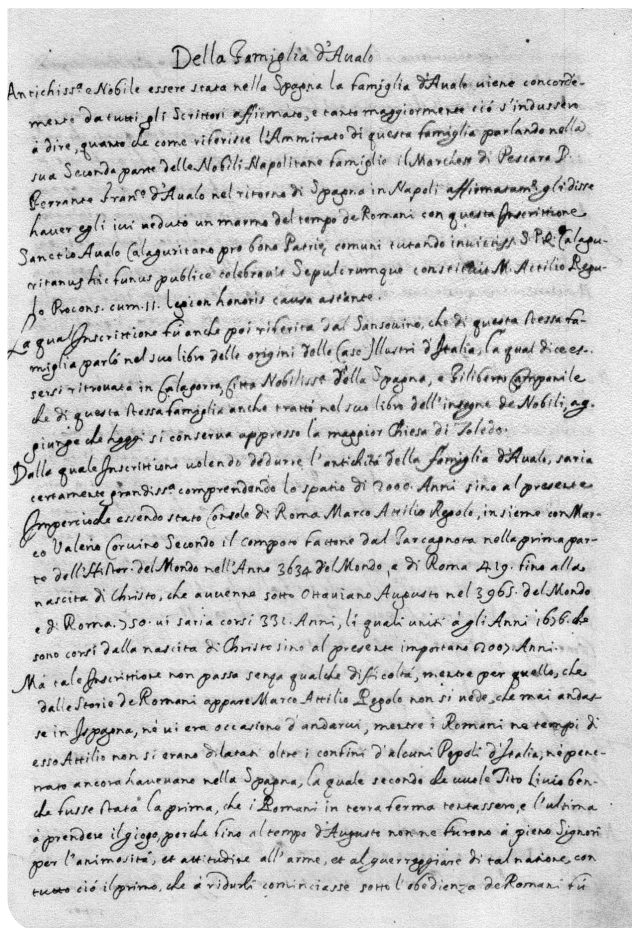 Della Famiglia d'Aualo
Antichiss.ª e Nobile essere stata nella Spagna la famiglia d'Aualo uiene concorde-
mente da tutti gli Scrittori affirmato, e tanto maggiormente ciò s'indussero
à dire, quanto che come riferisce l'Ammirato di questa famiglia parlando nella
sua Seconda parte delle Nobili Napolitane famiglie il Marchese di Pescara D.
Ferrante Fran.º d'Aualo nel ritorno di Spagna in Napoli affirmatam.te gli disse
hauer egli iui ueduto un marmo del tempo de Romani con questa Inscrittione
Sanctio Aualo Calaguritano pro bono Patrię comuni tutando inuictiss. S.P.Q. Calagu-
ritanus hic funus publice celebrauit Sepulcrumque constituit M. Attilio Regu-
lo Procons. cum. II. legion honoris causa astante.
La qual Inscrittione fù anche poi riferita dal Sansouino, che di questa stessa fa-
miglia parlò nel suo libro delle origini delle Case Illustri d'Italia, la qual dice es-
sersi ritrouata in Calagorra Città Nobiliss.ª della Spagna, e Filiberto Campanile
che di questa stessa famiglia anche trattò nel suo libro dell'insegne de Nobili, ag-
giunge che hoggi si conserua appresso la maggior Chiesa di Toledo.
Dalla quale Inscrittione uolendo dedurre l'antichità della famiglia d'Aualo, saria
certamente grandiss.ª comprendendo lo spatio di 2000. Anni sino al presente
Imperciòche essendo stato Consolo di Roma Marco Attilio Regolo, insieme con Mar-
co Valerio Coruino Secondo il computo fattone dal Tarcagnota nella prima par-
te dell'Histor. del Mondo nell'Anno 3634 del Mondo, e di Roma 419. fino alla
nascita di Christo, che auuenne sotto Ottauiano Augusto nel 3965. del Mondo
e di Roma. 750. ui saria corsi 331. Anni, li quali uniti à gli Anni 1676. che
sono corsi dalla nascita di Christo sino al presente importano 2007. Anni.
Mà tale Inscrittione non passa senza qualche difficoltà, mentre per quello, che
dalle Storie de Romani appare Marco Attilio Regolo non si uede, che mai andas-
se in Ispagna, nè ui era occasione d'andarui, mentre i Romani ne tempi di
esso Attilio non si erano dilatati oltre i confini d'alcuni Popoli d'Italia, nè pene-
trato ancora haueuano nella Spagna, la quale secondo che uuole Tito Liuio ben-
che fusse stata la prima, che i Romani in terra ferma tentassero, e l'ultima
à prendere il giogo, perche fino al tempo d'Augusto non ne furono à pieno Signori
per l'animosità, et attitudine all'arme, et al guerreggiare di tal natione, con
tutto ciò il primo, che à ridurli cominciasse sotto l'obedienza de Romani fù